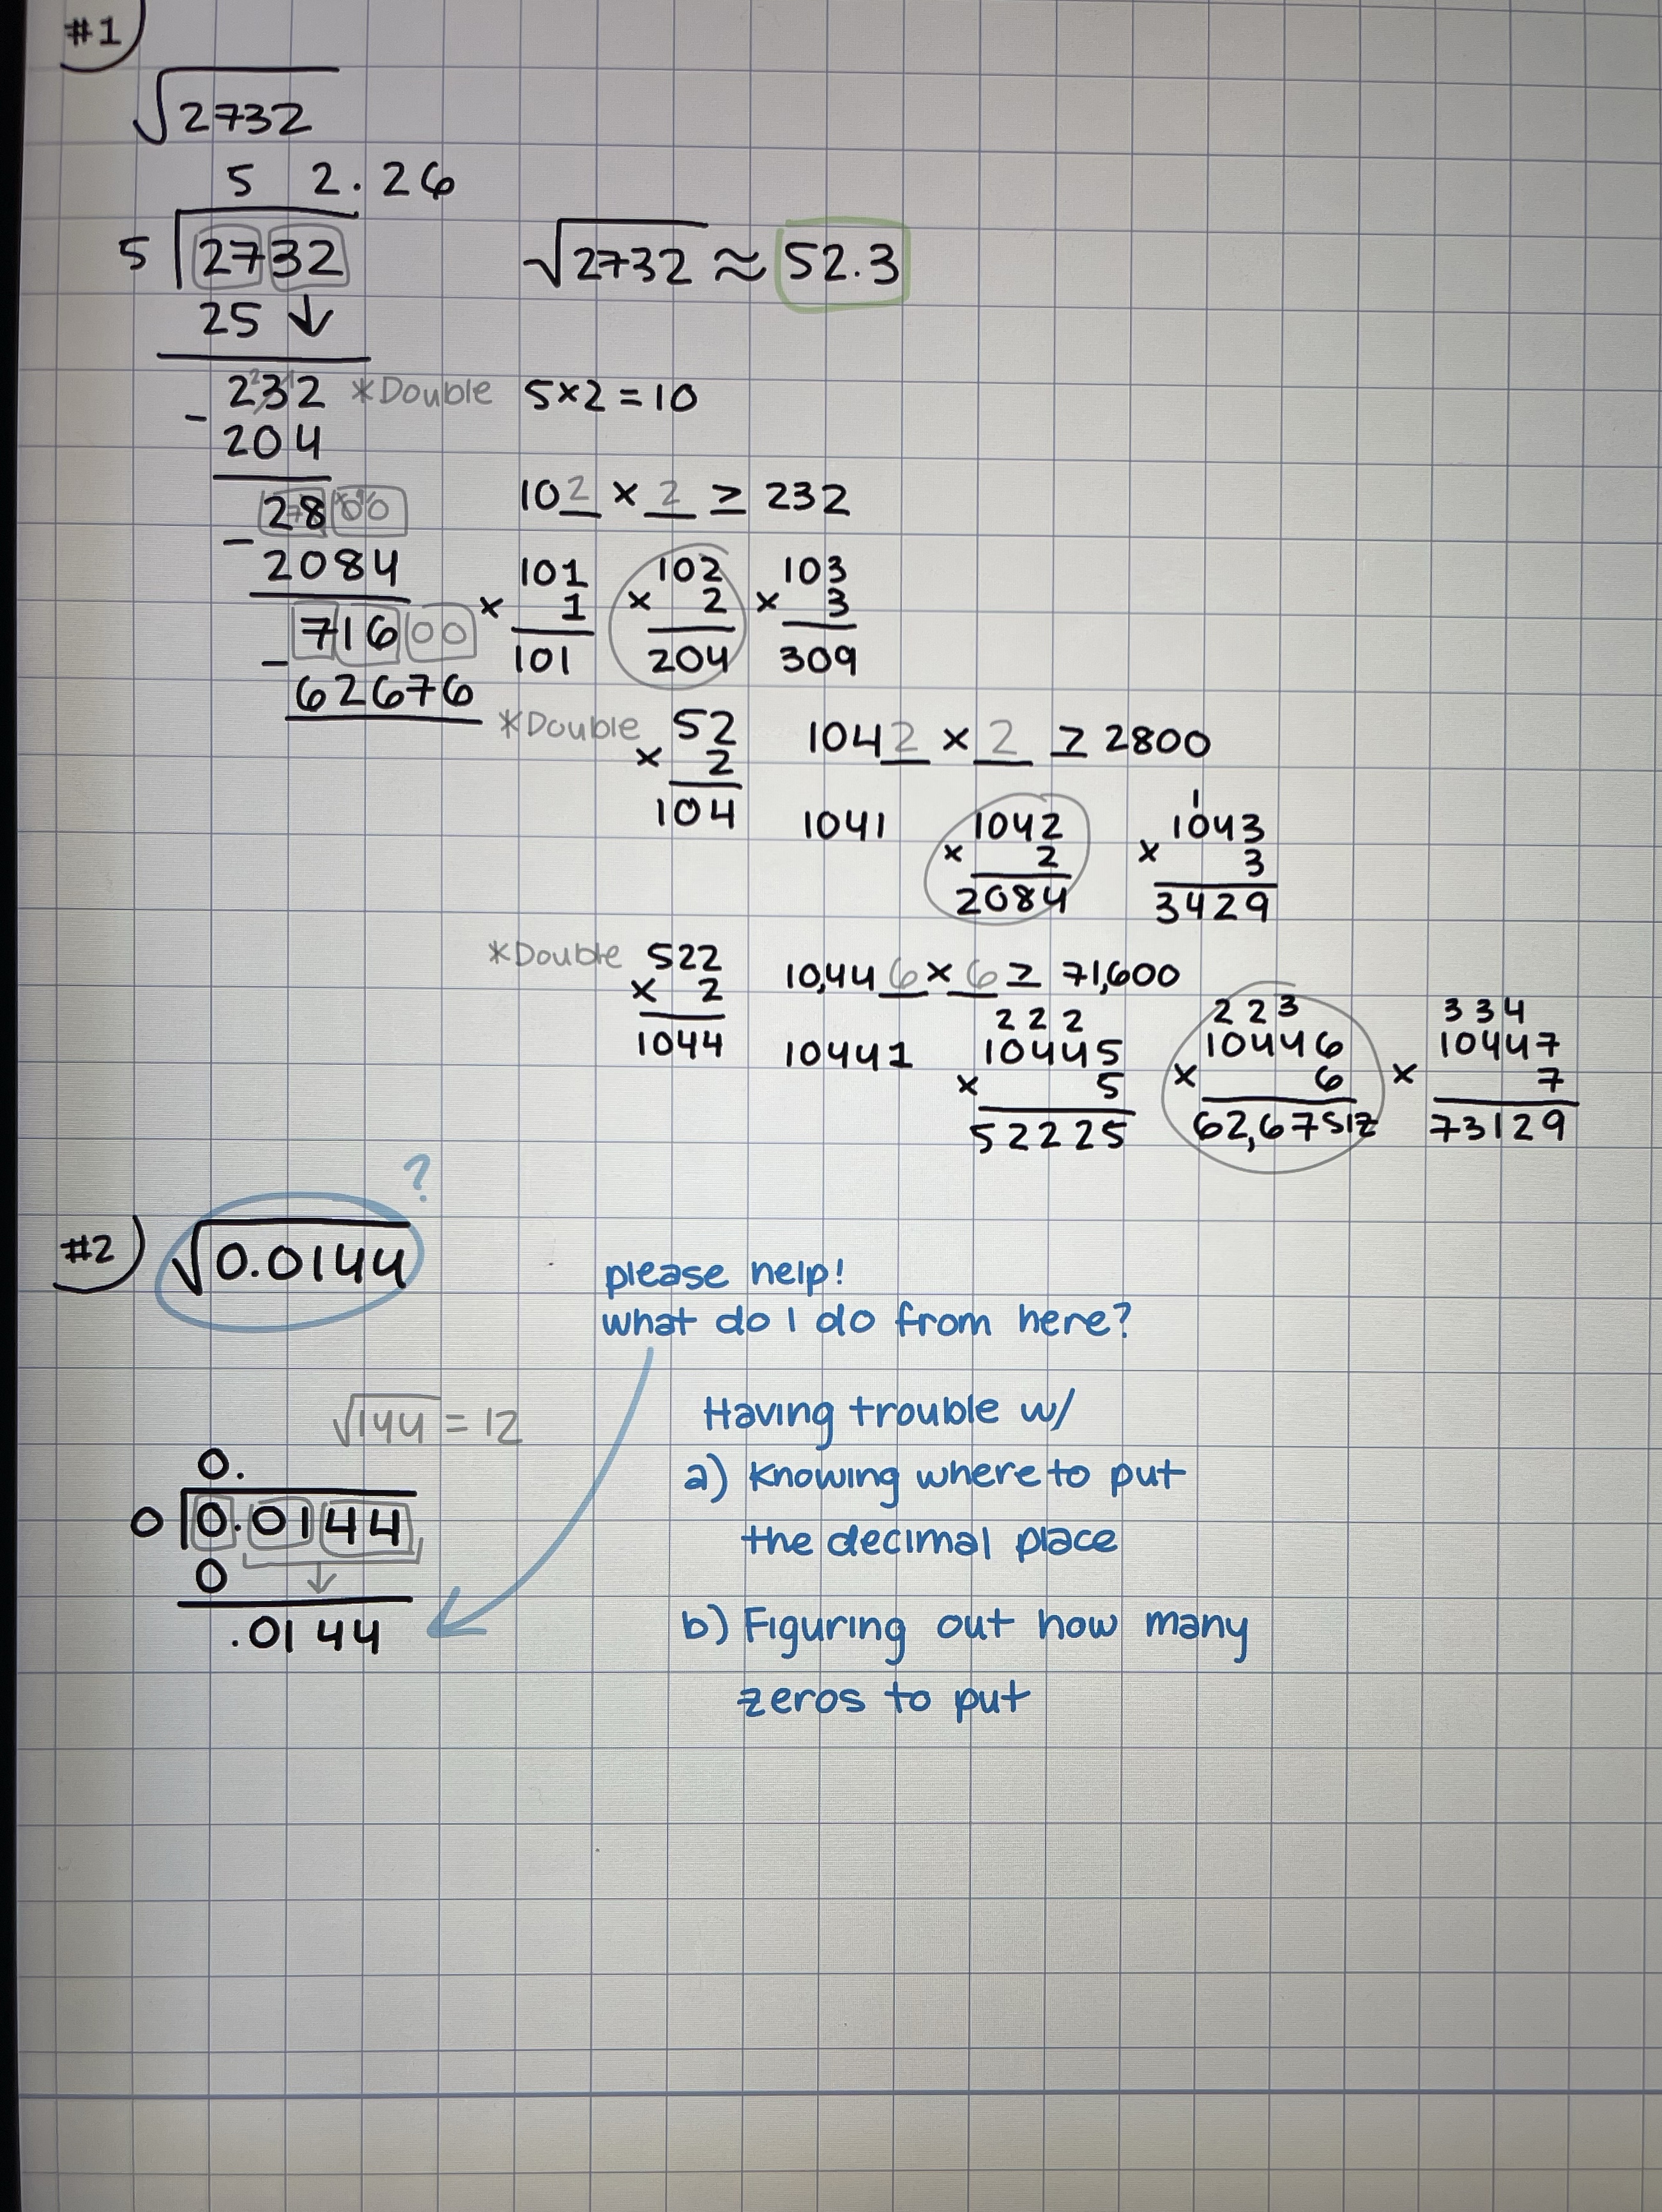 #1)
√2732
5 2.26
5 2732
√2732 ≈ 52.3
25 ↓
232 *Double 5×2=10
- 204
28 00
10 2 × 2 ≥ 232
- 2084
101 102 103
× 1 × 2 × 3
101 204 309
716 00
- 62676
*Double 52 104 2 × 2 ≥ 2800
× 2
104
1041 1042 1043
× 2 × 3
2084 3429
*Double 522 10,44 6 × 6 ≥ 71,600
× 2
1044
10441 10445 10446 10447
× 5 × 6 × 7
52225 62,67 73129
?
#2) √0.0144
please help!
what do I do from here?
√144 = 12
Having trouble w/
0.
a) Knowing where to put
the decimal place
0 0.0144
0 ↓
.0144
b) Figuring out how many
zeros to put